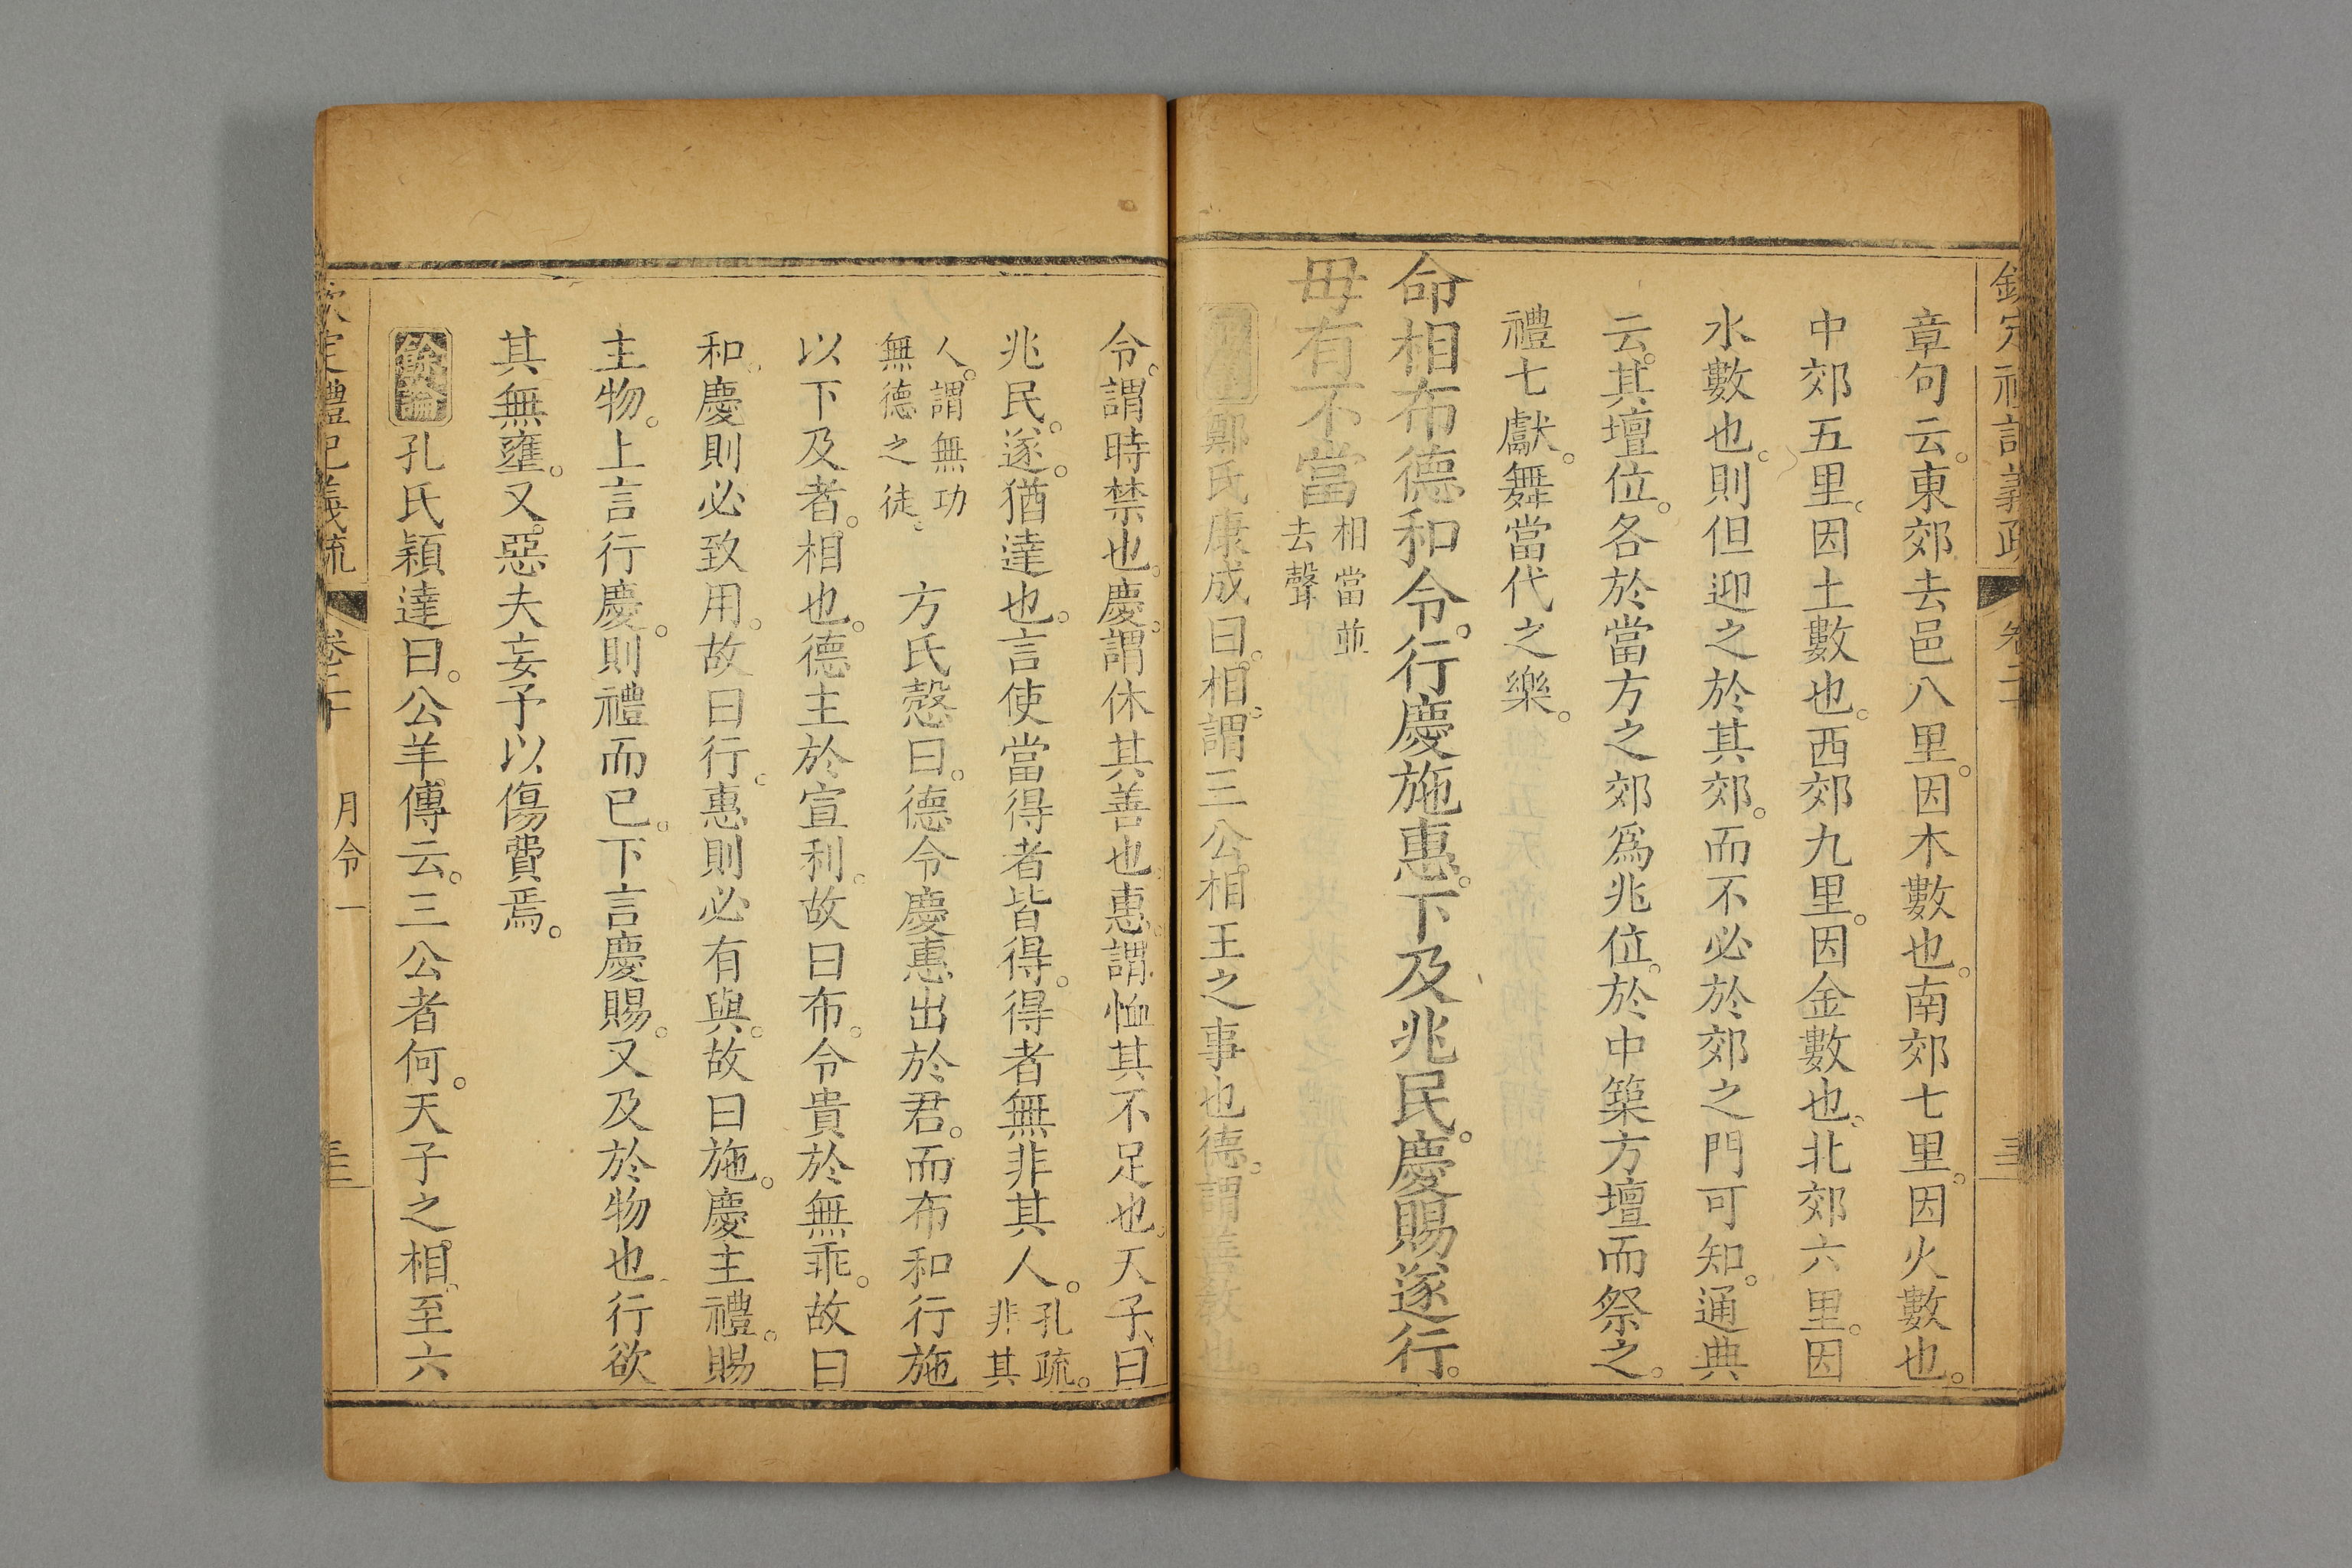 章句云。東郊去邑八里。因木數也。南郊七里。因火數也。
中郊五里。因土數也。西郊九里。因金數也。北郊六里。因
水數也。則但迎之於其郊。而不必於郊之門可知。通典
云。其壇位。各於當方之郊爲兆位。於中築方壇而祭之。
禮七獻。舞當代之樂。
命相布德和令。行慶施惠。下及兆民。慶賜遂行。
毋有不當相當並
去聲
鄭氏康成曰。相。謂三公。相王之事也。德。謂善敎也。
令。謂時禁也。慶。謂休其善也。惠。謂恤其不足也。天子曰
兆民。遂。猶達也。言使當得者皆得。得者無非其人。孔疏。
非其
人。謂無功
無德之徒。 方氏慤曰。德令慶惠出於君。而布和行施
以下及者。相也。德主於宣利。故曰布。令貴於無乖。故曰
和。慶則必致用。故曰行。惠則必有與。故曰施。慶主禮。賜
主物。上言行慶。則禮而已。下言慶賜。又及於物也。行欲
其無壅。又惡夫妄予以傷費焉。
餘論孔氏穎達曰。公羊傳云。三公者何。天子之相。至六
欽定禮記義疏 卷二十 月令一